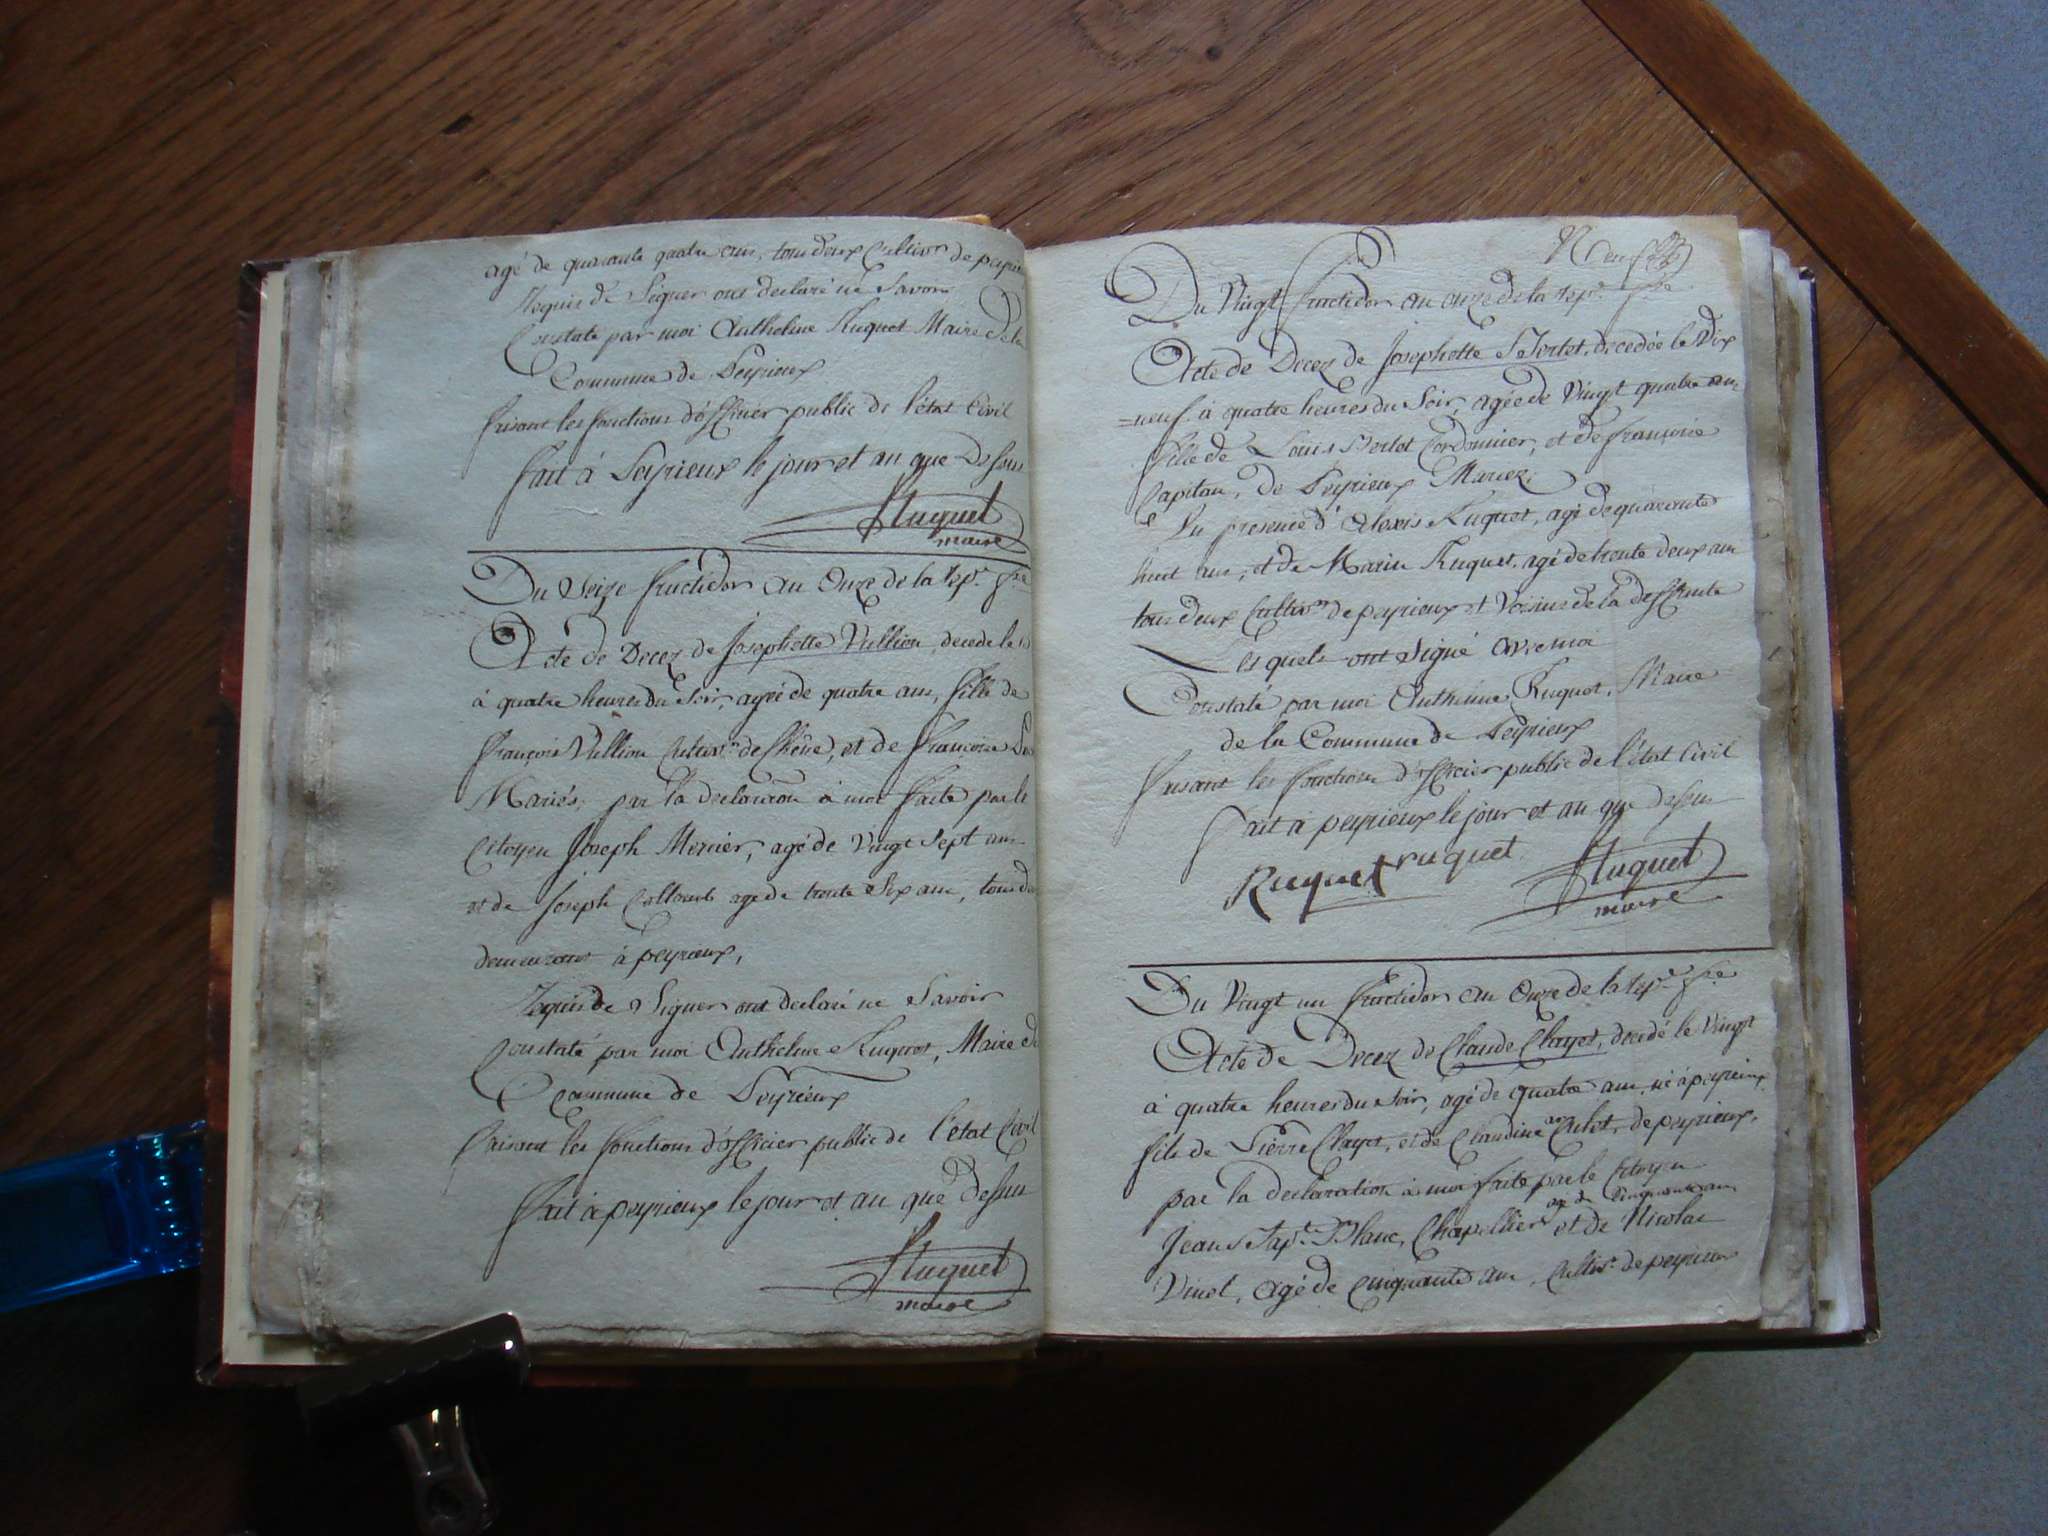 agé de quarante quatre ans, tous deux Cultivrs de peyrieux
Requis de Signer ont declaré ne Savoir
Constaté par moi Anthelme Ruquet Maire de la
Commune de Peyrieux
faisant les fonctions d'officier public de l'état Civil
fait à Peyrieux le jour et an que Dessus
Ruquet
maire
Du Seize fructidor an Onze de la repe. fse
Acte de Decez de Josephette Vullion, decede le
à quatre heures du Soir, agée de quatre ans, fille de
françois Vullion Cultivr. de Chêne, et de francoise
Mariés, par la declaration à moi faite par le
Citoyen Joseph Mercier, agé de Vingt Sept ans
et de Joseph agé de trente Six ans, tous deux
demeurant à peyrieux,
Requis de Signer ont declaré ne Savoir
Constaté par moi Anthelme Ruquet, Maire de
Commune de Peyrieux
faisant les fonctions d'officier public de l'état Civil
fait à peyrieux le jour et an que dessus
Ruquet
maire
Neuf
Du Vingt fructidor an onze de la repe. fse
Acte de Decez de Josephette Berlet, decedée le Dix
=neuf à quatre heures du Soir, agée de Vingt quatre ans
fille de Louis Berlet Cordonnier, et de francoise
Capitan, de Peyrieux Mariez,
En presence d'Alexis Ruquet, agé de quarante
huit ans, et de Marin Ruquet, agé de trente deux ans
tous deux Cultivrs de peyrieux et Voisins de la deffunte
Lesquels ont Signé avec moi
Constaté par moi Anthelme Ruquet, Maire
de la Commune de Peyrieux
faisant les fonctions d'officier public de l'état Civil
fait à peyrieux le jour et an que dessus
Ruquet ruquet Ruquet
maire
Du Vingt un fructidor an Onze de la repe. fse
Acte de Decez de Claude Clayet, decédé le Vingt
à quatre heures du Soir, agé de quatre ans, né à peyrieux
fils de Pierre Clayet, et de Claudine de peyrieux,
par la declaration à moi faite par le Citoyen
Jean Bapt. Blanc, Chapellier agé de Cinquante ans et de Nicolas
Vinet, agé de Cinquante ans, Cultivr. de peyrieux